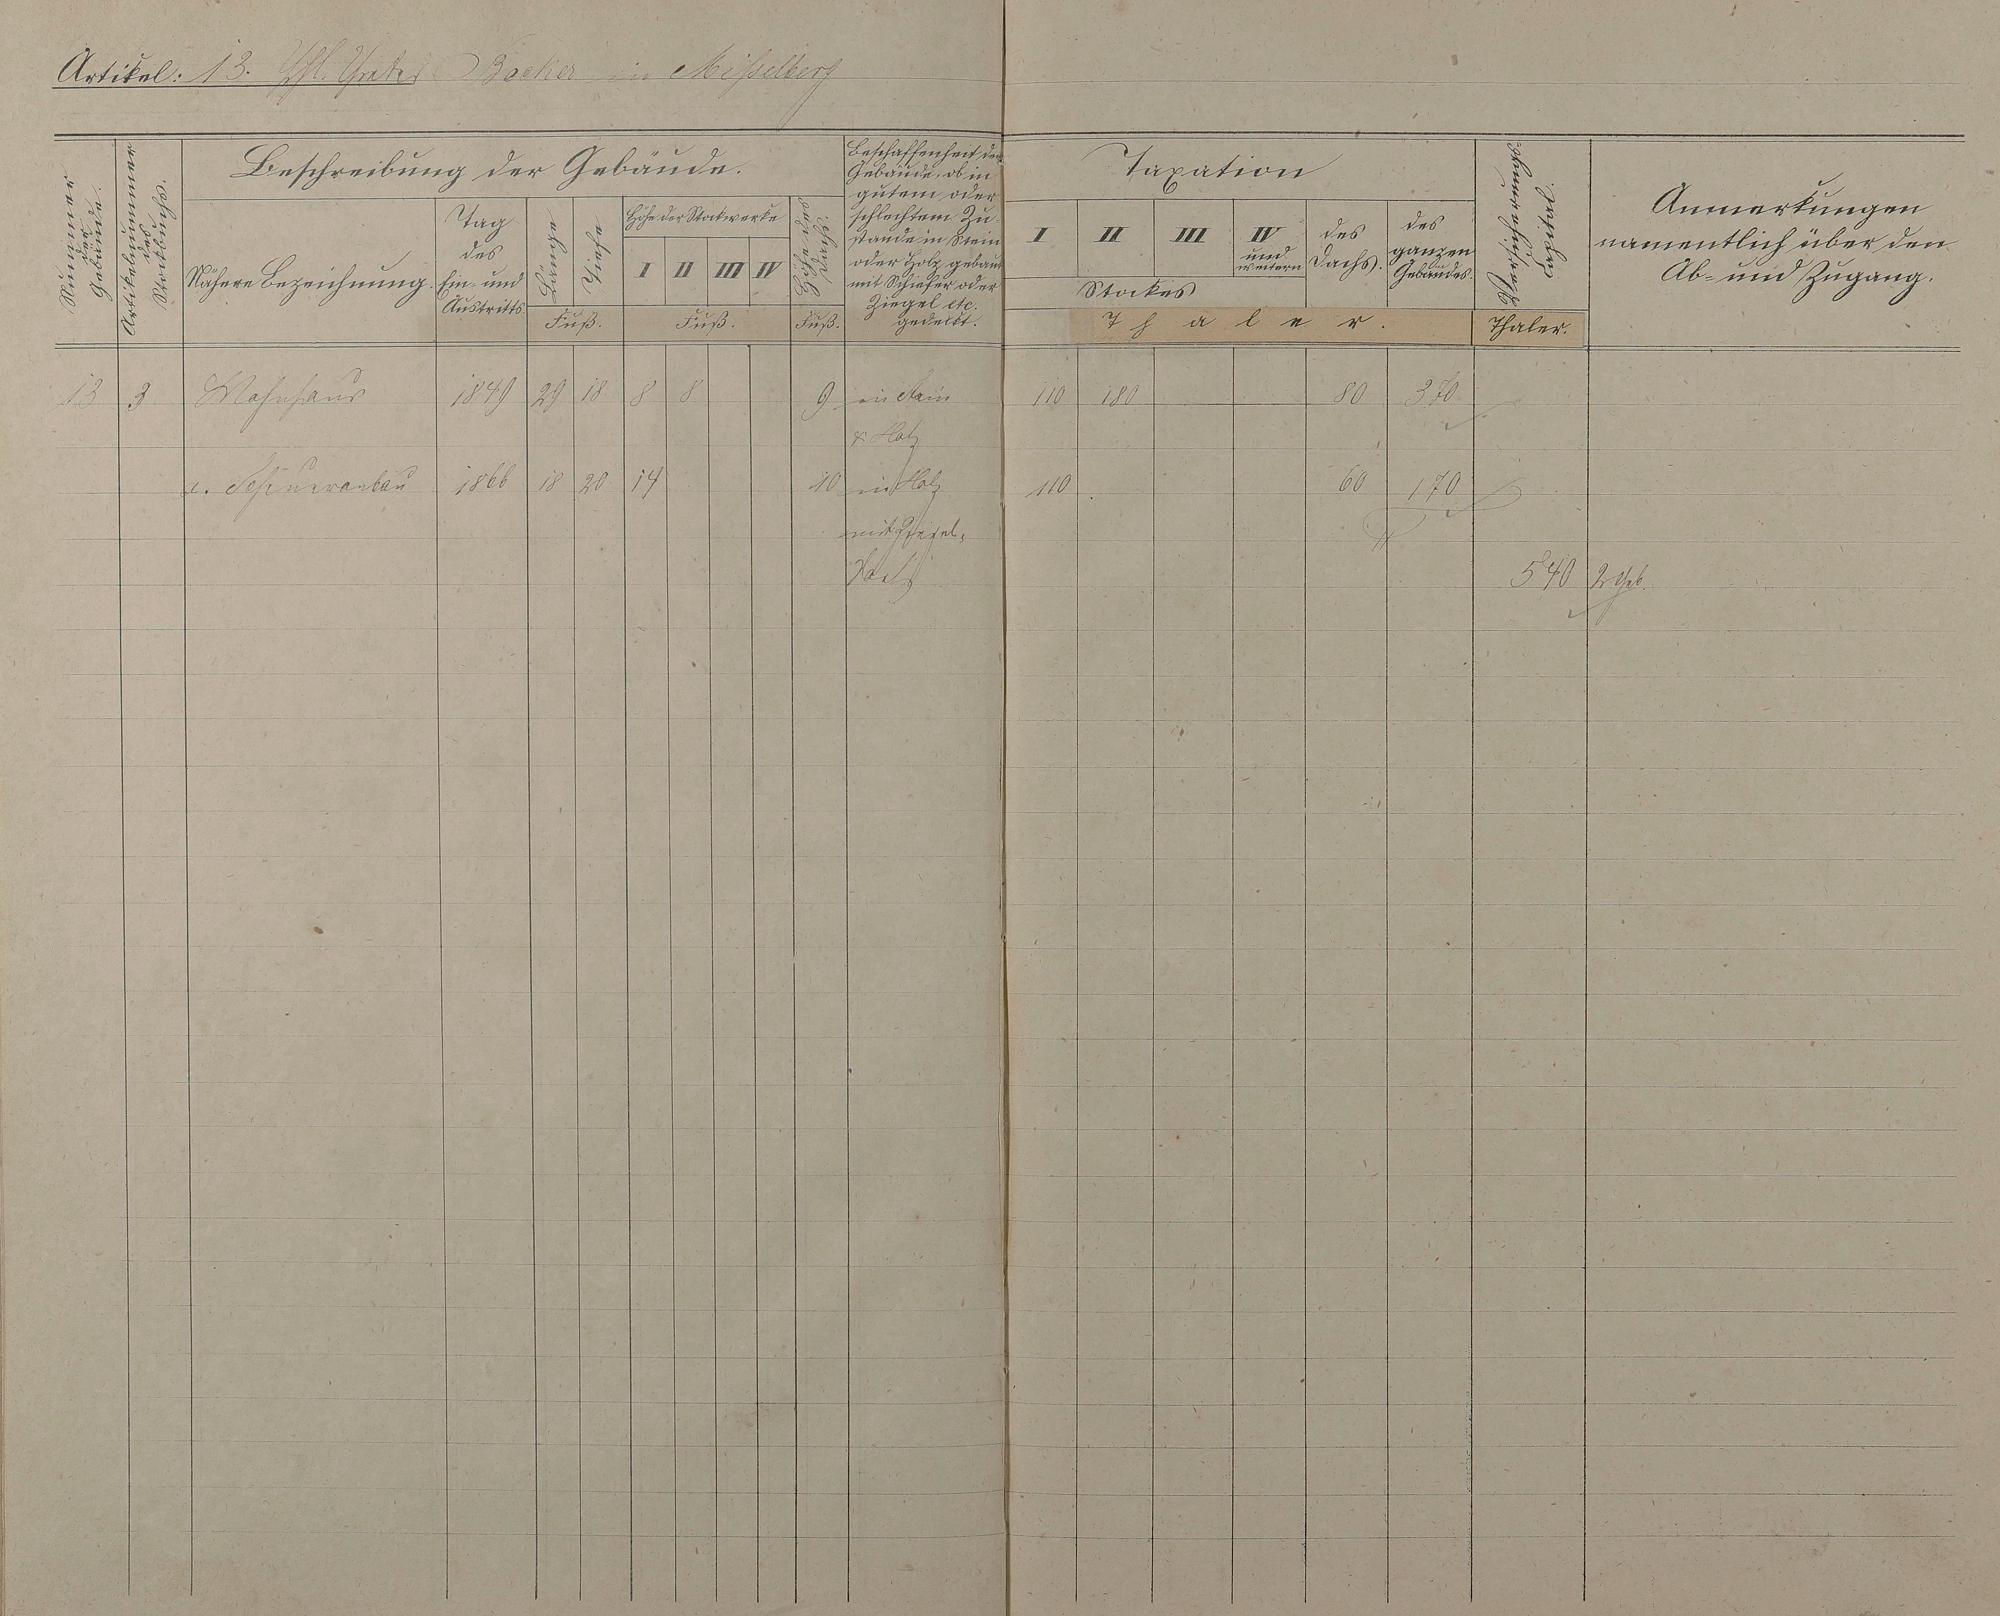 Artikel: 13. Phl. Becker in Misselberg
Nummer der Gebäude.
Artikelnummer des Stockbuchs.
Beschreibung der Gebäude.
Nähere Bezeichnung.
Tag des Ein- und Austritts
Länge
Tiefe
Fuß.
Höhe der Stockwerke
I II III IV
Fuß.
Höhe des Dachs.
Fuß.
Beschaffenheit der
Gebäude, ob in
gutem oder
schlechtem Zu-
stande in Stein
oder Holz gebaut
mit Schiefer oder
Ziegel etc.
gedeckt.
Taxation
I II III IV und weitern
Stockes
des Dachs.
des ganzen Gebäudes.
Thaler.
Thaler.
Anmerkungen
namentlich über den
Ab- und Zugang.
13 3 Wohnhaus 1849 29 18 8 8 9 in Stein 110 180 80 370
& Holz
a. Scheueranbau 1866 18 20 14 10 in Holz 110 60 170
mit Ziegel-
dach
540 2 Geb.